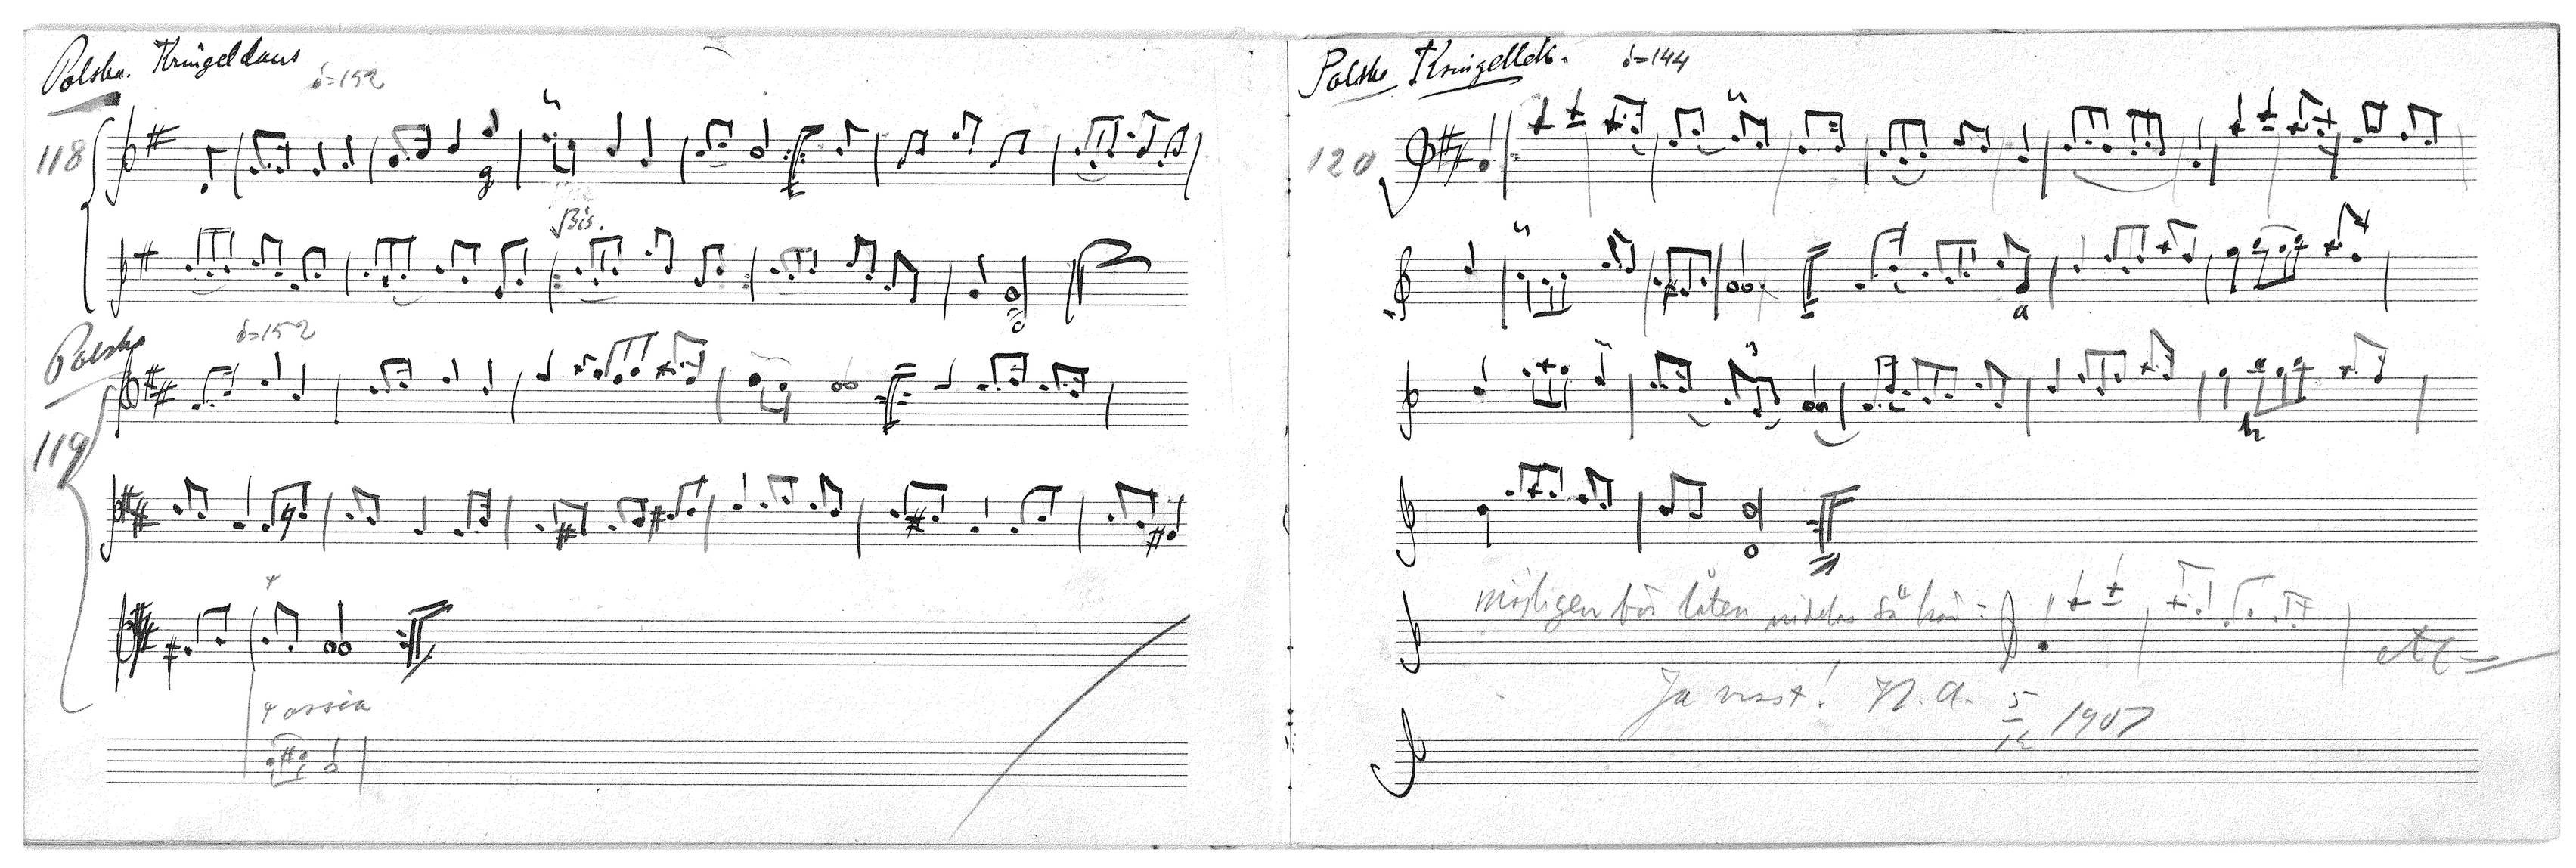 Polska. Kringeldans
♩=152
118
g
Bis.
Polska
♩=152
119
+
+ ossia
Polska Kringellek.
♩=144
120
a
h
möjligen bör låten
etc
Ja visst! N. A. 5/12 1907